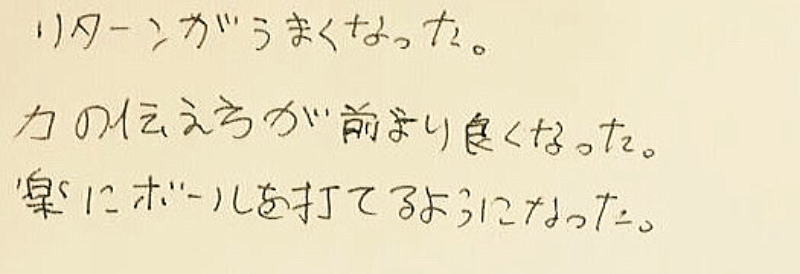 リターンがうまくなった。
力の伝え方が前より良くなった。
楽にボールを打てるようになった。